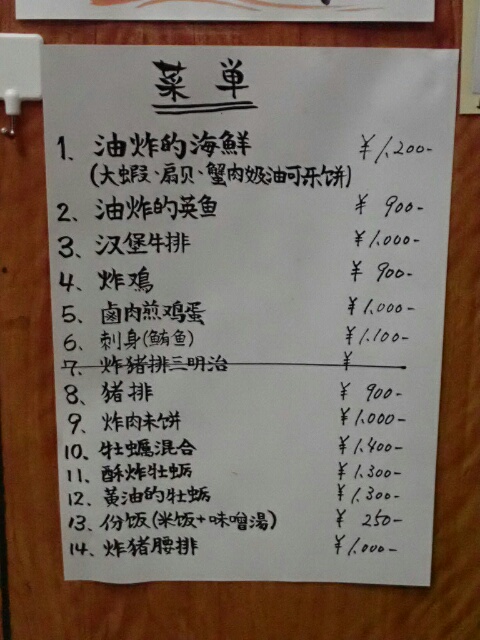 菜单
1、油炸的海鮮 ¥1,200-
(大蝦、扇贝、蟹肉奶油可乐饼)
2、油炸的英鱼 ¥900-
3、汉堡牛排 ¥1,000-
4、炸鳮 ¥900-
5、鹵肉煎鸡蛋 ¥1,000-
6、刺身(鲔鱼) ¥1,100-
7、炸猪排三明治 ¥
8、猪排 ¥900-
9、炸肉未饼 ¥1,000-
10、牡蠣混合 ¥1,400-
11、酥炸牡蛎 ¥1,300-
12、黄油的牡蛎 ¥1,300-
13、份饭(米饭+味噌湯) ¥250-
14、炸猪腰排 ¥1,000-